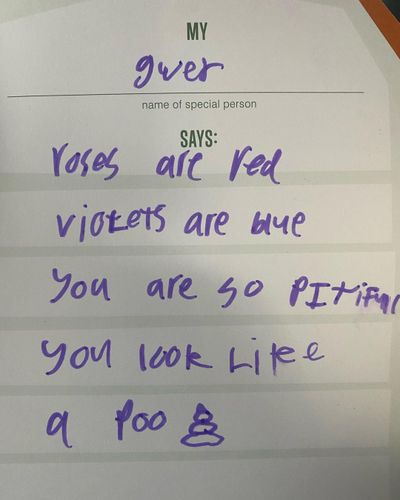 MY
gwer
name of special person
SAYS:
roses are red
violets are blue
you are so PItiFul
you look Like
a Poo